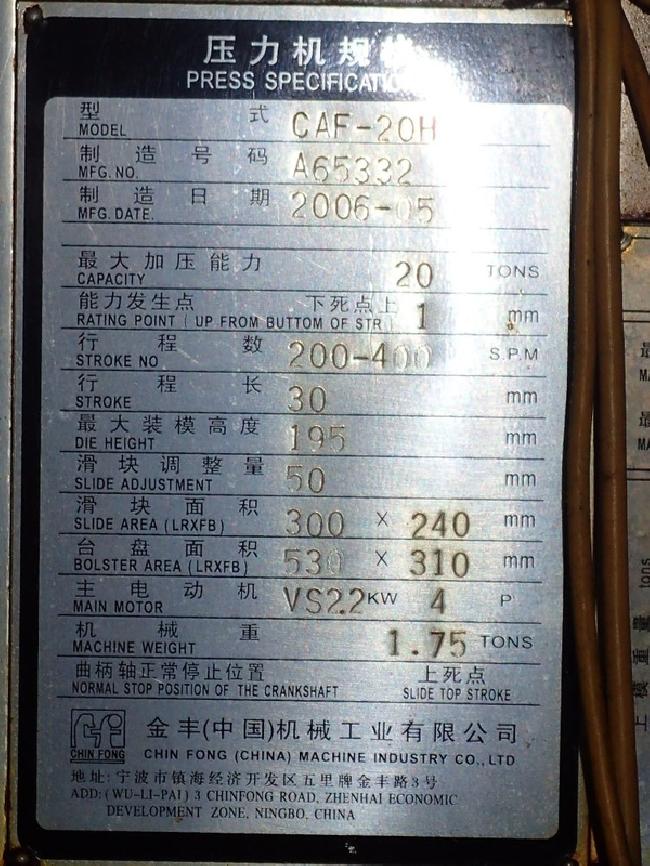 压力机规格
PRESS SPECIFICATION
型 式 CAF-20H
MODEL
制造号码 A65332
MFG. NO.
制造日期 2006-05
MFG. DATE.
最大加压能力 20 TONS
CAPACITY
能力发生点 下死点上 1 mm
RATING POINT ( UP FROM BUTTOM OF STR )
行程数 200-400 S.P.M
STROKE NO
行程长 30 mm
STROKE
最大装模高度 195 mm
DIE HEIGHT
滑块调整量 50 mm
SLIDE ADJUSTMENT
滑块面积 300 X 240 mm
SLIDE AREA (LRXFB)
台盘面积 530 X 310 mm
BOLSTER AREA (LRXFB)
主电动机 VS2.2 KW 4 P
MAIN MOTOR
机械重 1.75 TONS
MACHINE WEIGHT
曲柄轴正常停止位置 上死点
NORMAL STOP POSITION OF THE CRANKSHAFT SLIDE TOP STROKE
金丰(中国)机械工业有限公司
CHIN FONG CHIN FONG (CHINA) MACHINE INDUSTRY CO.,LTD
地址: 宁波市镇海经济开发区五里牌金丰路3号
ADD: (WU-LI-PAI) 3 CHINFONG ROAD, ZHENHAI ECONOMIC
DEVELOPMENT ZONE, NINGBO, CHINA